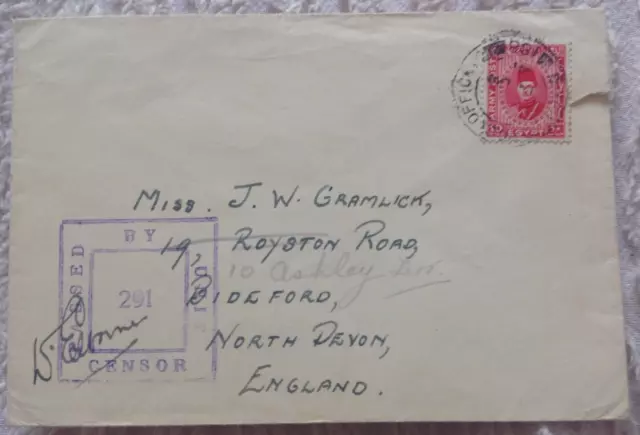 OFFICE
ARMY POST
EGYPT
Miss. J. W. GRAMLICK,
19, ROYSTON ROAD,
10 Ashley
BIDEFORD,
NORTH DEVON,
ENGLAND.
PASSED
BY
291
CENSOR